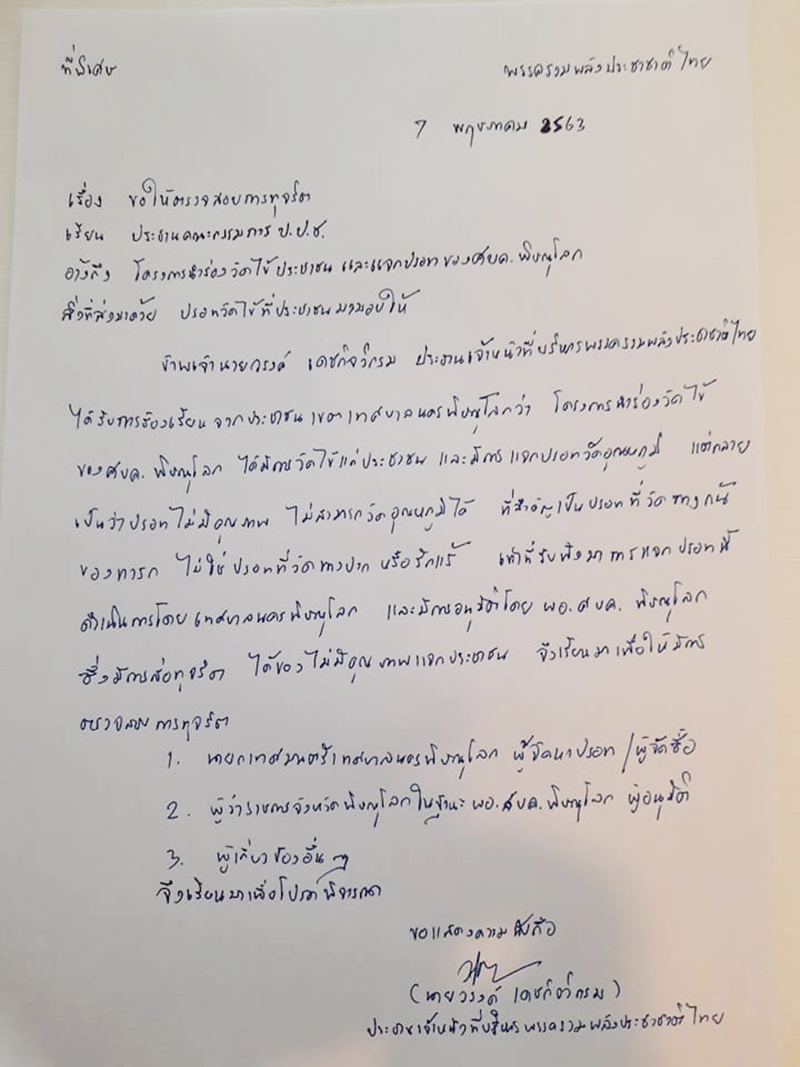 ที่พิเศษ
พรรครวมพลังประชาชาติไทย
7 พฤษภาคม 2563
เรื่อง ขอให้ตรวจสอบการทุจริต
เรียน ประธานคณะกรรมการ ป.ป.ช.
อ้างถึง โครงการนำร่องวัดไข้ประชาชน และแจกปรอทของศบค.พิษณุโลก
สิ่งที่ส่งมาด้วย ปรอทวัดไข้ที่ประชาชนมามอบให้
ข้าพเจ้านายวรงค์ เดชกิจวิกรม ประธานเจ้าหน้าที่บริหารพรรครวมพลังประชาชาติไทย
ได้รับการร้องเรียนจากประชาชนเขตเทศบาลนครพิษณุโลกว่า โครงการนำร่องวัดไข้
ของศบค.พิษณุโลก ได้มีการวัดไข้แก่ประชาชน และมีการแจกปรอทวัดอุณหภูมิ แต่กลาย
เป็นว่าปรอทไม่มีคุณภาพ ไม่สามารถวัดอุณหภูมิได้ ที่สำคัญเป็นปรอทที่วัดทางก้น
ของทารก ไม่ใช่ปรอทที่วัดทางปาก หรือรักแร้ เท่าที่รับฟังมาการแจกปรอทนี้
ดำเนินการโดยเทศบาลนครพิษณุโลก และมีการอนุมัติโดย ผอ.ศบค. พิษณุโลก
ซึ่งมีการส่อทุจริต ได้ของไม่มีคุณภาพแจกประชาชน จึงเรียนมาเพื่อให้มีการ
ตรวจสอบการทุจริต
1. นายกเทศมนตรีเทศบาลนครพิษณุโลก ผู้จัดหาปรอท/ผู้จัดซื้อ
2. ผู้ว่าราชการจังหวัดพิษณุโลกในฐานะ ผอ.ศบค.พิษณุโลก ผู้อนุมัติ
3. ผู้เกี่ยวข้องอื่นๆ
จึงเรียนมาเพื่อโปรดพิจารณา
ขอแสดงความนับถือ
(นายวรงค์ เดชกิจวิกรม)
ประธานเจ้าหน้าที่บริหารพรรครวมพลังประชาชาติไทย